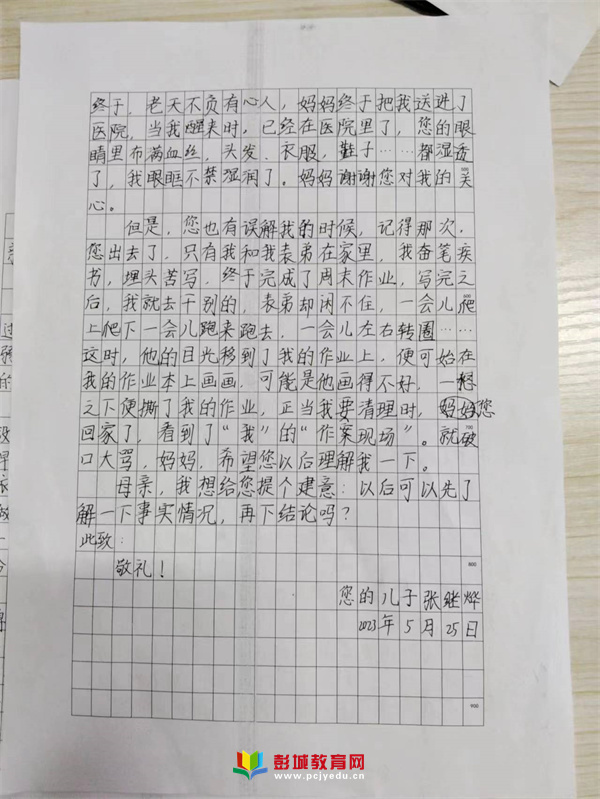 终于，老天不负有心人，妈妈终于把我送进了
医院，当我醒来时，已经在医院里了，您的眼
睛里布满血丝，头发、衣服，鞋子……都湿透
了，我眼眶不禁湿润了。妈妈谢谢您对我的关
心。
但是，您也有误解我的时候，记得那次，
您出去了，只有我和我表弟在家里，我奋笔疾
书，埋头苦写，终于完成了周末作业，写完之
后，我就去干别的，表弟却闲不住，一会儿爬
上爬下一会儿跑来跑去，一会儿左右转圈……
这时，他的目光移到了我的作业上，便可始在
我的作业本上画画，可能是他画得不好，一怒
之下便撕了我的作业，正当我要清理时，妈妈您
回家了，看到了“我”的“作案现场”。就破
700
口大骂，妈妈，希望您以后理解我一下。
母亲，我想给您提个建意：以后可以先了
解一下事实情况，再下结论吗？
此致：
敬礼！
800
您的儿子张继烨
2023年5月25日
900
彭城教育网
www.pcjyedu.cn